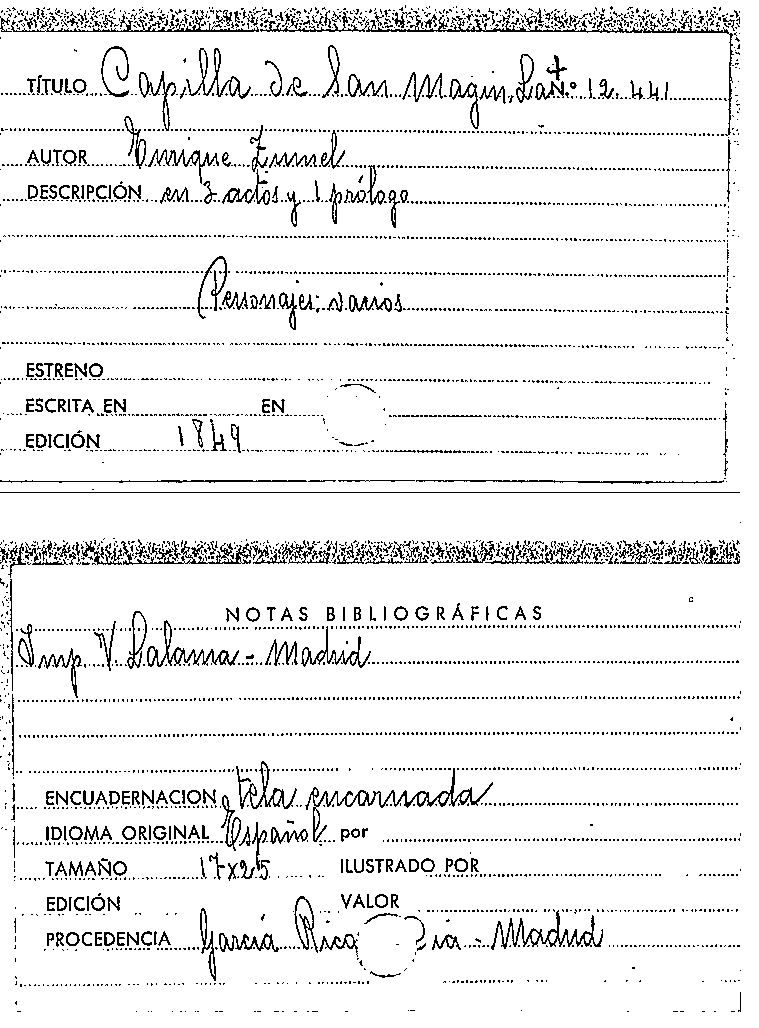 TÍTULO Capilla de San Magin, La N.º 12.441
AUTOR Enrique Zumel
DESCRIPCIÓN en 3 actos y 1 prólogo
Personajes: varios
ESTRENO
ESCRITA EN EN
EDICIÓN 1849
NOTAS BIBLIOGRÁFICAS
Imp. V. Lalama - Madrid
ENCUADERNACION tela encarnada
IDIOMA ORIGINAL Español por
TAMAÑO 17x25 ILUSTRADO POR
EDICIÓN VALOR
PROCEDENCIA García Rico - Madrid